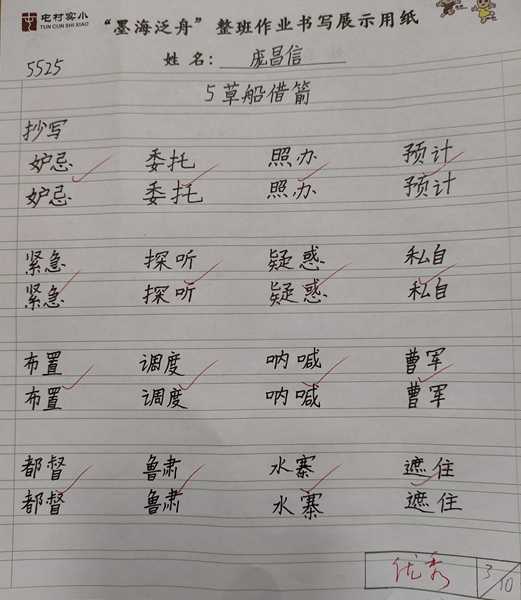 屯村实小
TUN CUN SHI XIAO
“墨海泛舟”整班作业书写展示用纸
5525
姓名：庞昌信
5 草船借箭
抄写
妒忌 委托 照办 预计
妒忌 委托 照办 预计
紧急 探听 疑惑 私自
紧急 探听 疑惑 私自
布置 调度 呐喊 曹军
布置 调度 呐喊 曹军
都督 鲁肃 水寨 遮住
都督 鲁肃 水寨 遮住
优秀 3/10